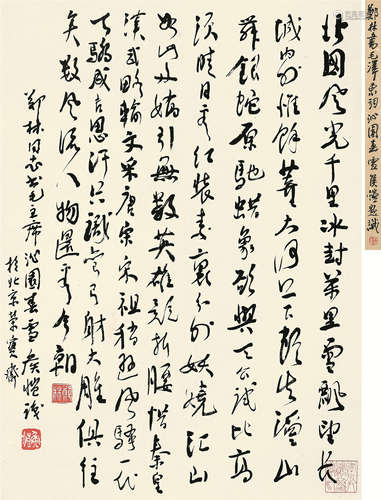 鄭林書毛澤東詞沁園春雪侯愷題識
北国风光千里冰封万里雪飘望长
城内外惟餘莽莽大河上下顿失滔滔山
舞银蛇原驰蜡象欲與天公试比高
须晴日看红装素裹分外妖娆江山
如此多娇引無数英雄竞折腰惜秦皇
漢武略输文采唐宗宋祖稍逊风骚一代
天骄成吉思汗只識弯弓射大雕俱往
矣数风流人物還看今朝
郑林同志书毛主席沁園春雪侯恺識
于北京荣寳斋